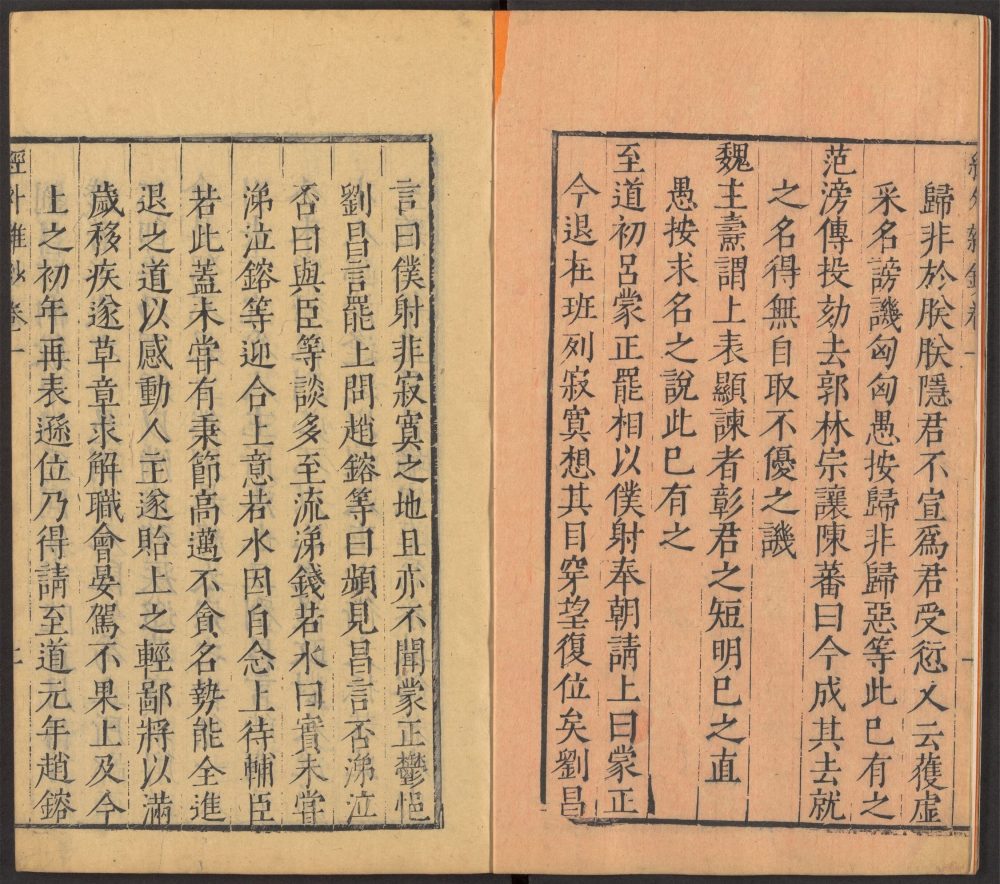 歸非於朕朕隱君不宣爲君受愆又云蒦虛
采名謗譏匈匈愚按歸非歸惡等此已有之
范滂傳投劾去郭林宗讓陳蕃曰今成其去就
之名得無自取不優之譏
魏主燾謂上表顯諫者彰君之短明已之直
愚按求名之說此已有之
至道初呂蒙正罷相以僕射奉朝請上曰蒙正
今退在班列寂寞想其目穿望復位矣劉昌
言曰僕射非寂寞之地且亦不聞蒙正鬱悒
劉昌言罷上問趙鎔等曰頻見昌言否涕泣
否曰與臣等談多至流涕錢若水曰實未嘗
涕泣鎔等迎合上意若水因自念上待輔臣
若此蓋未嘗有秉節高邁不貪名勢能全進
退之道以感動人主遂貽上之輕鄙將以滿
歲移疾遂草章求解職會晏駕不果上及今
上之初年再表遜位乃得請至道元年趙鎔
經外雜鈔卷一